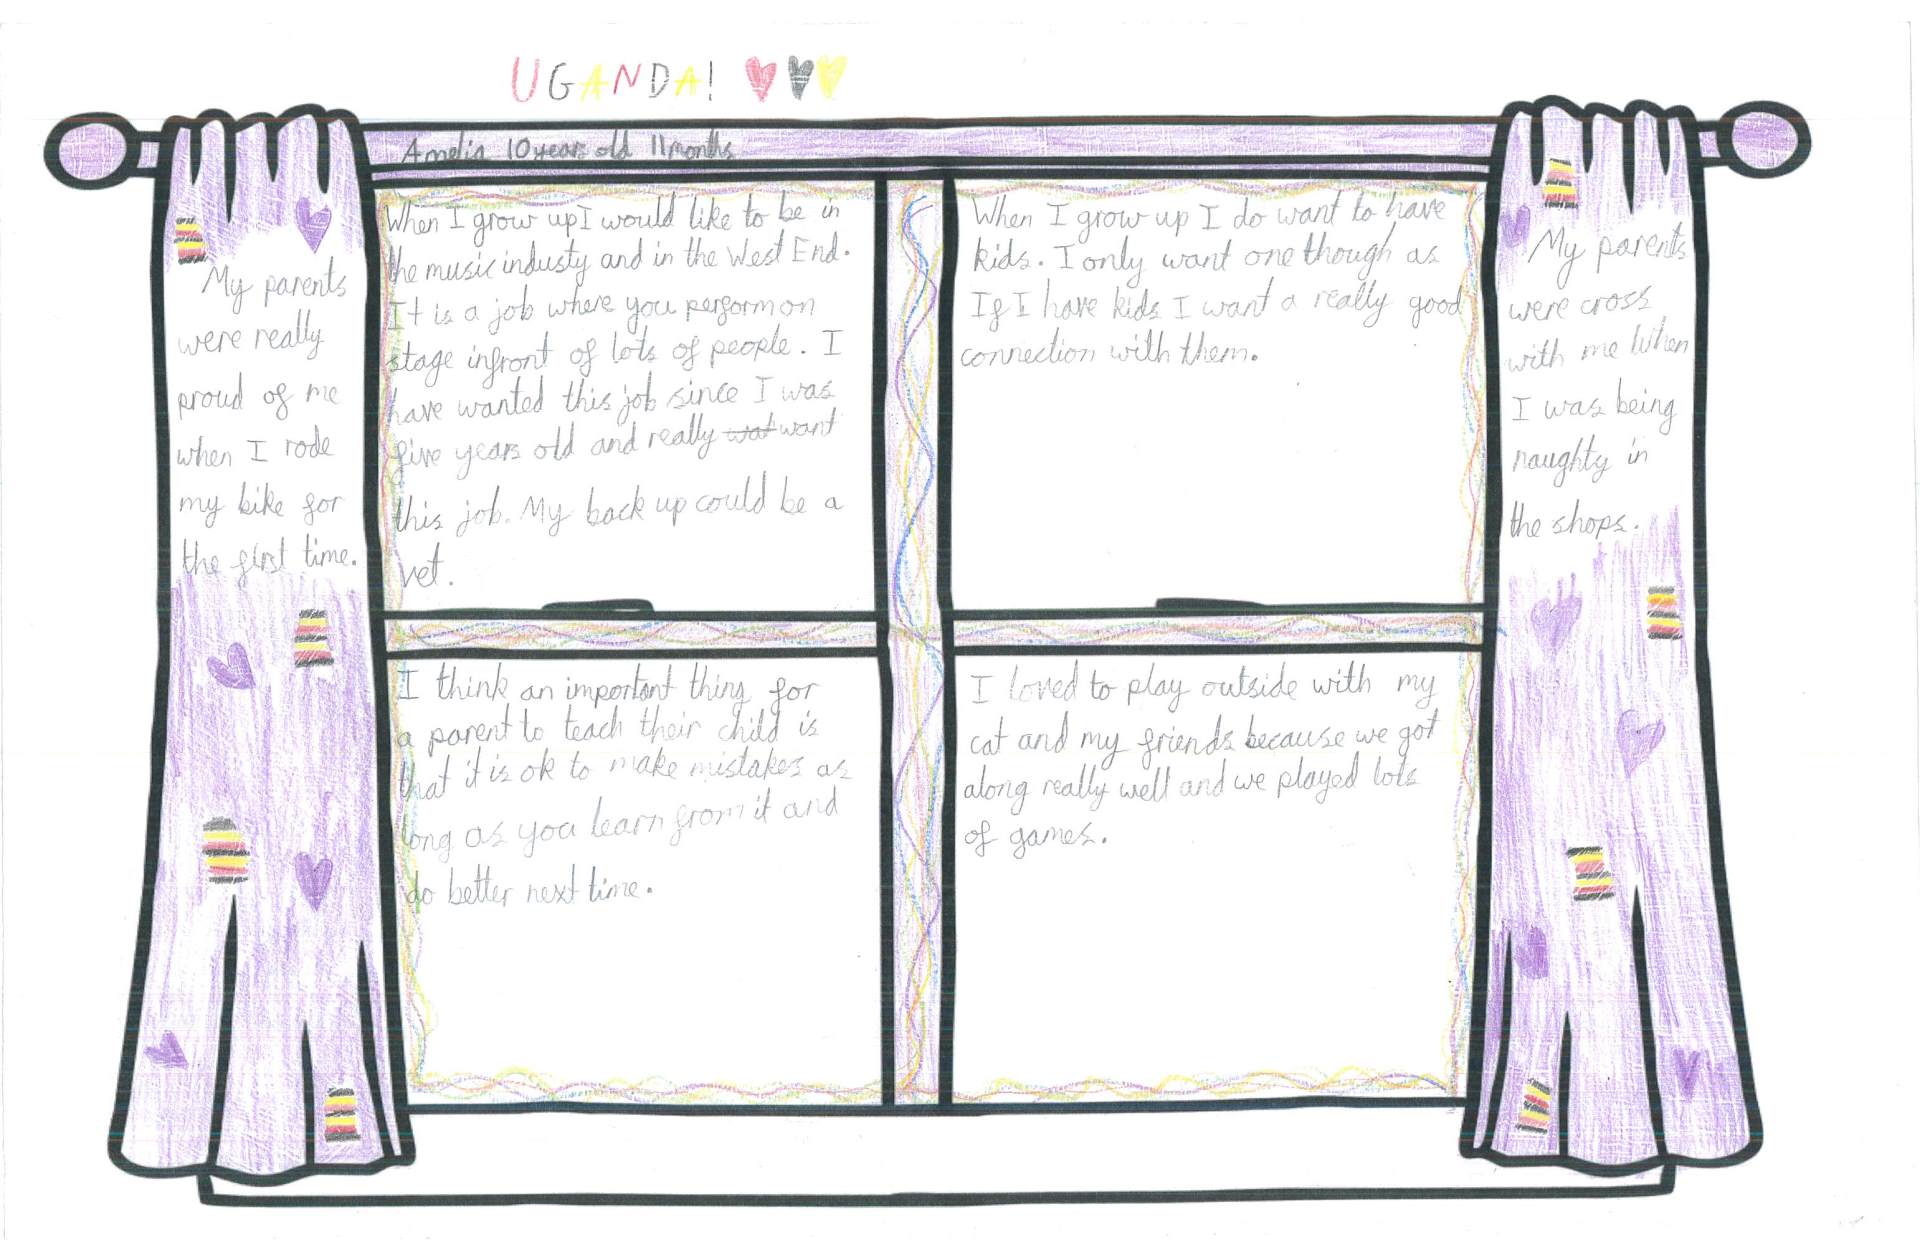 UGANDA!
Amelia 10 years old 11 months
My parents
were really
proud of me
when I rode
my bike for
the first time.
When I grow up I would like to be in
the music industy and in the West End.
It is a job where you pergorm on
stage infront of lots of people. I
have wanted this job since I was
five years old and really wat want
this job. My back up could be a
vet.
When I grow up I do want to have
kids. I only want one though as
If I have kids I want a really good
connection with them.
I think an important thing for
a parent to teach their child is
that it is ok to make mistakes as
long as you learn from it and
do better next time.
I loved to play outside with my
cat and my friends because we got
along really well and we played lots
of games.
My parents
were cross
with me When
I was being
naughty in
the shops.